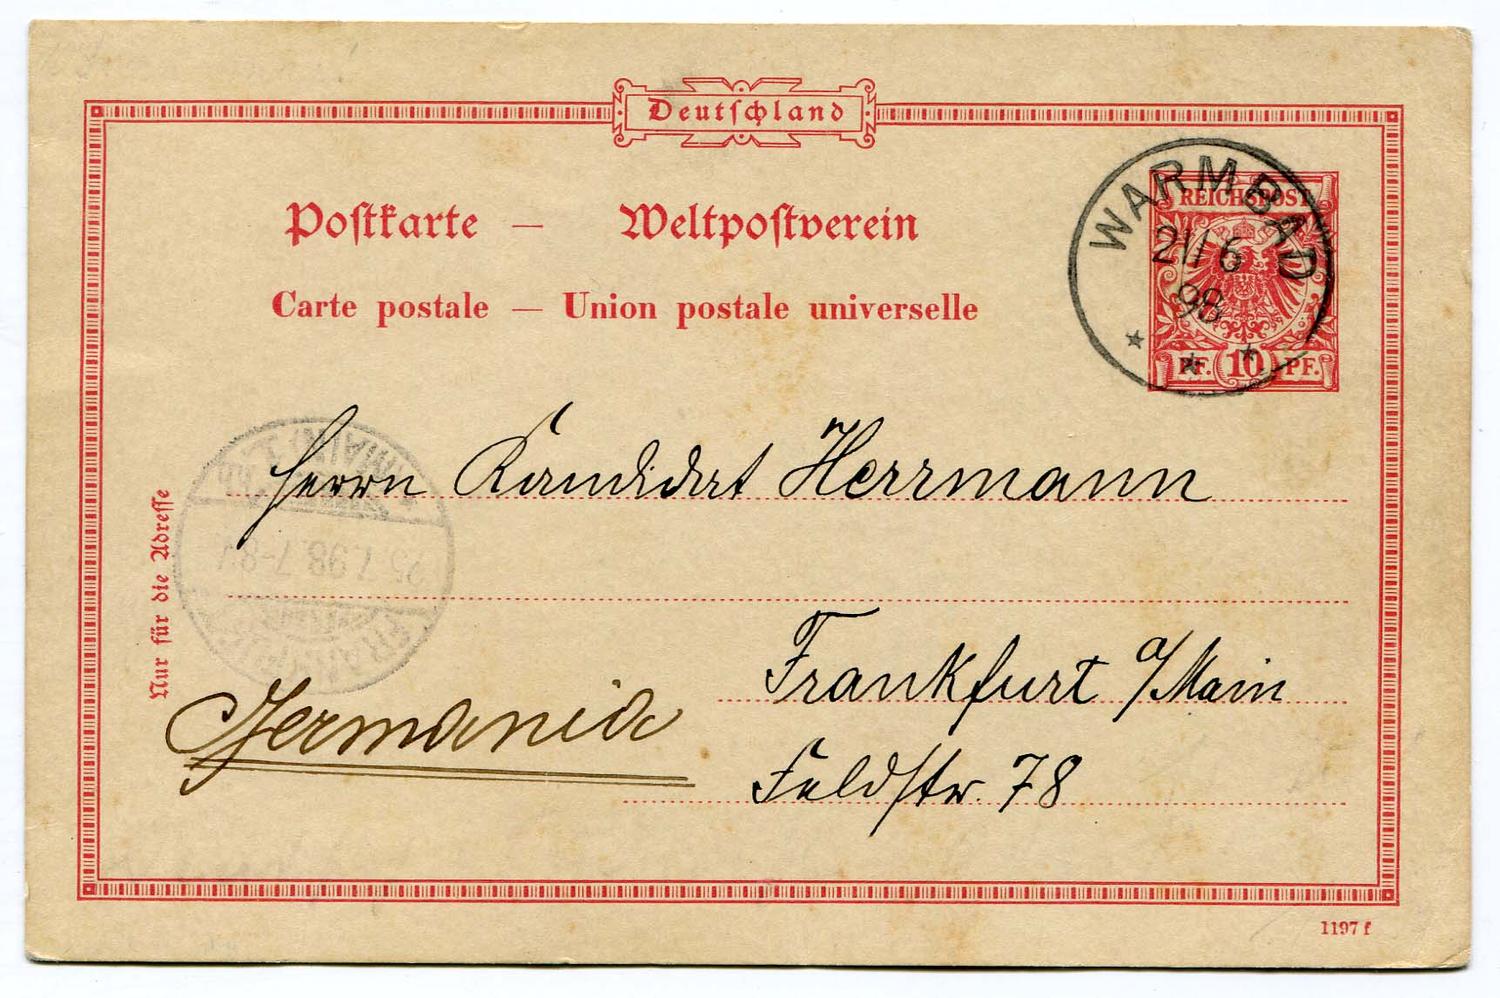 Deutschland
Postkarte — Weltpostverein
Carte postale — Union postale universelle
WARMBAD
21/6
98
REICHSPOST
PF. 10 PF.
Herrn Kandidat Herrmann
Frankfurt a/Main
Feldstr. 78
Germania
Nur für die Adresse
FRANKFURT
(MAIN) 1
25.7.98.7-8
1197 f